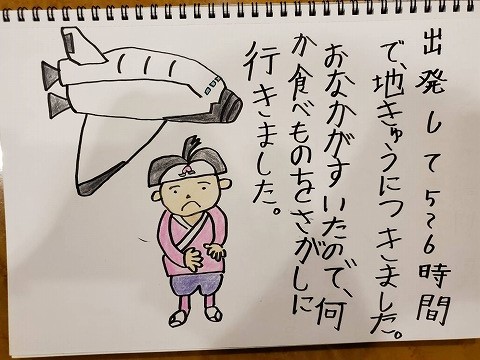 出発して5〜6時間
で、地きゅうにつきました。
おなかがすいたので、何
か食べものをさがしに
行きました。